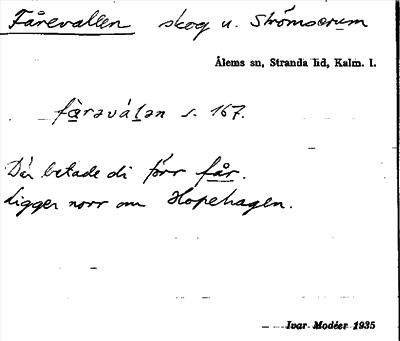 Fårevallen skog u. Strömserum
Ålems sn, Stranda hd, Kalm. l.
fàrəválən s. 167.
Där betade di förr får.
Ligger norr om Hopehagen.
Ivar Modéer 1935